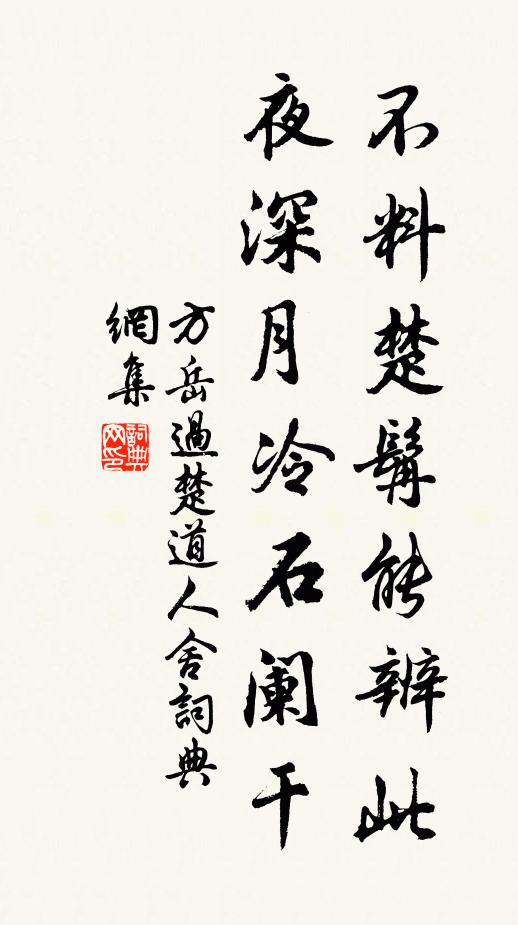 不料楚鬅能辨此
夜深月冷石阑干
方岳過楚道人舍詞典
網集
詞典
网印